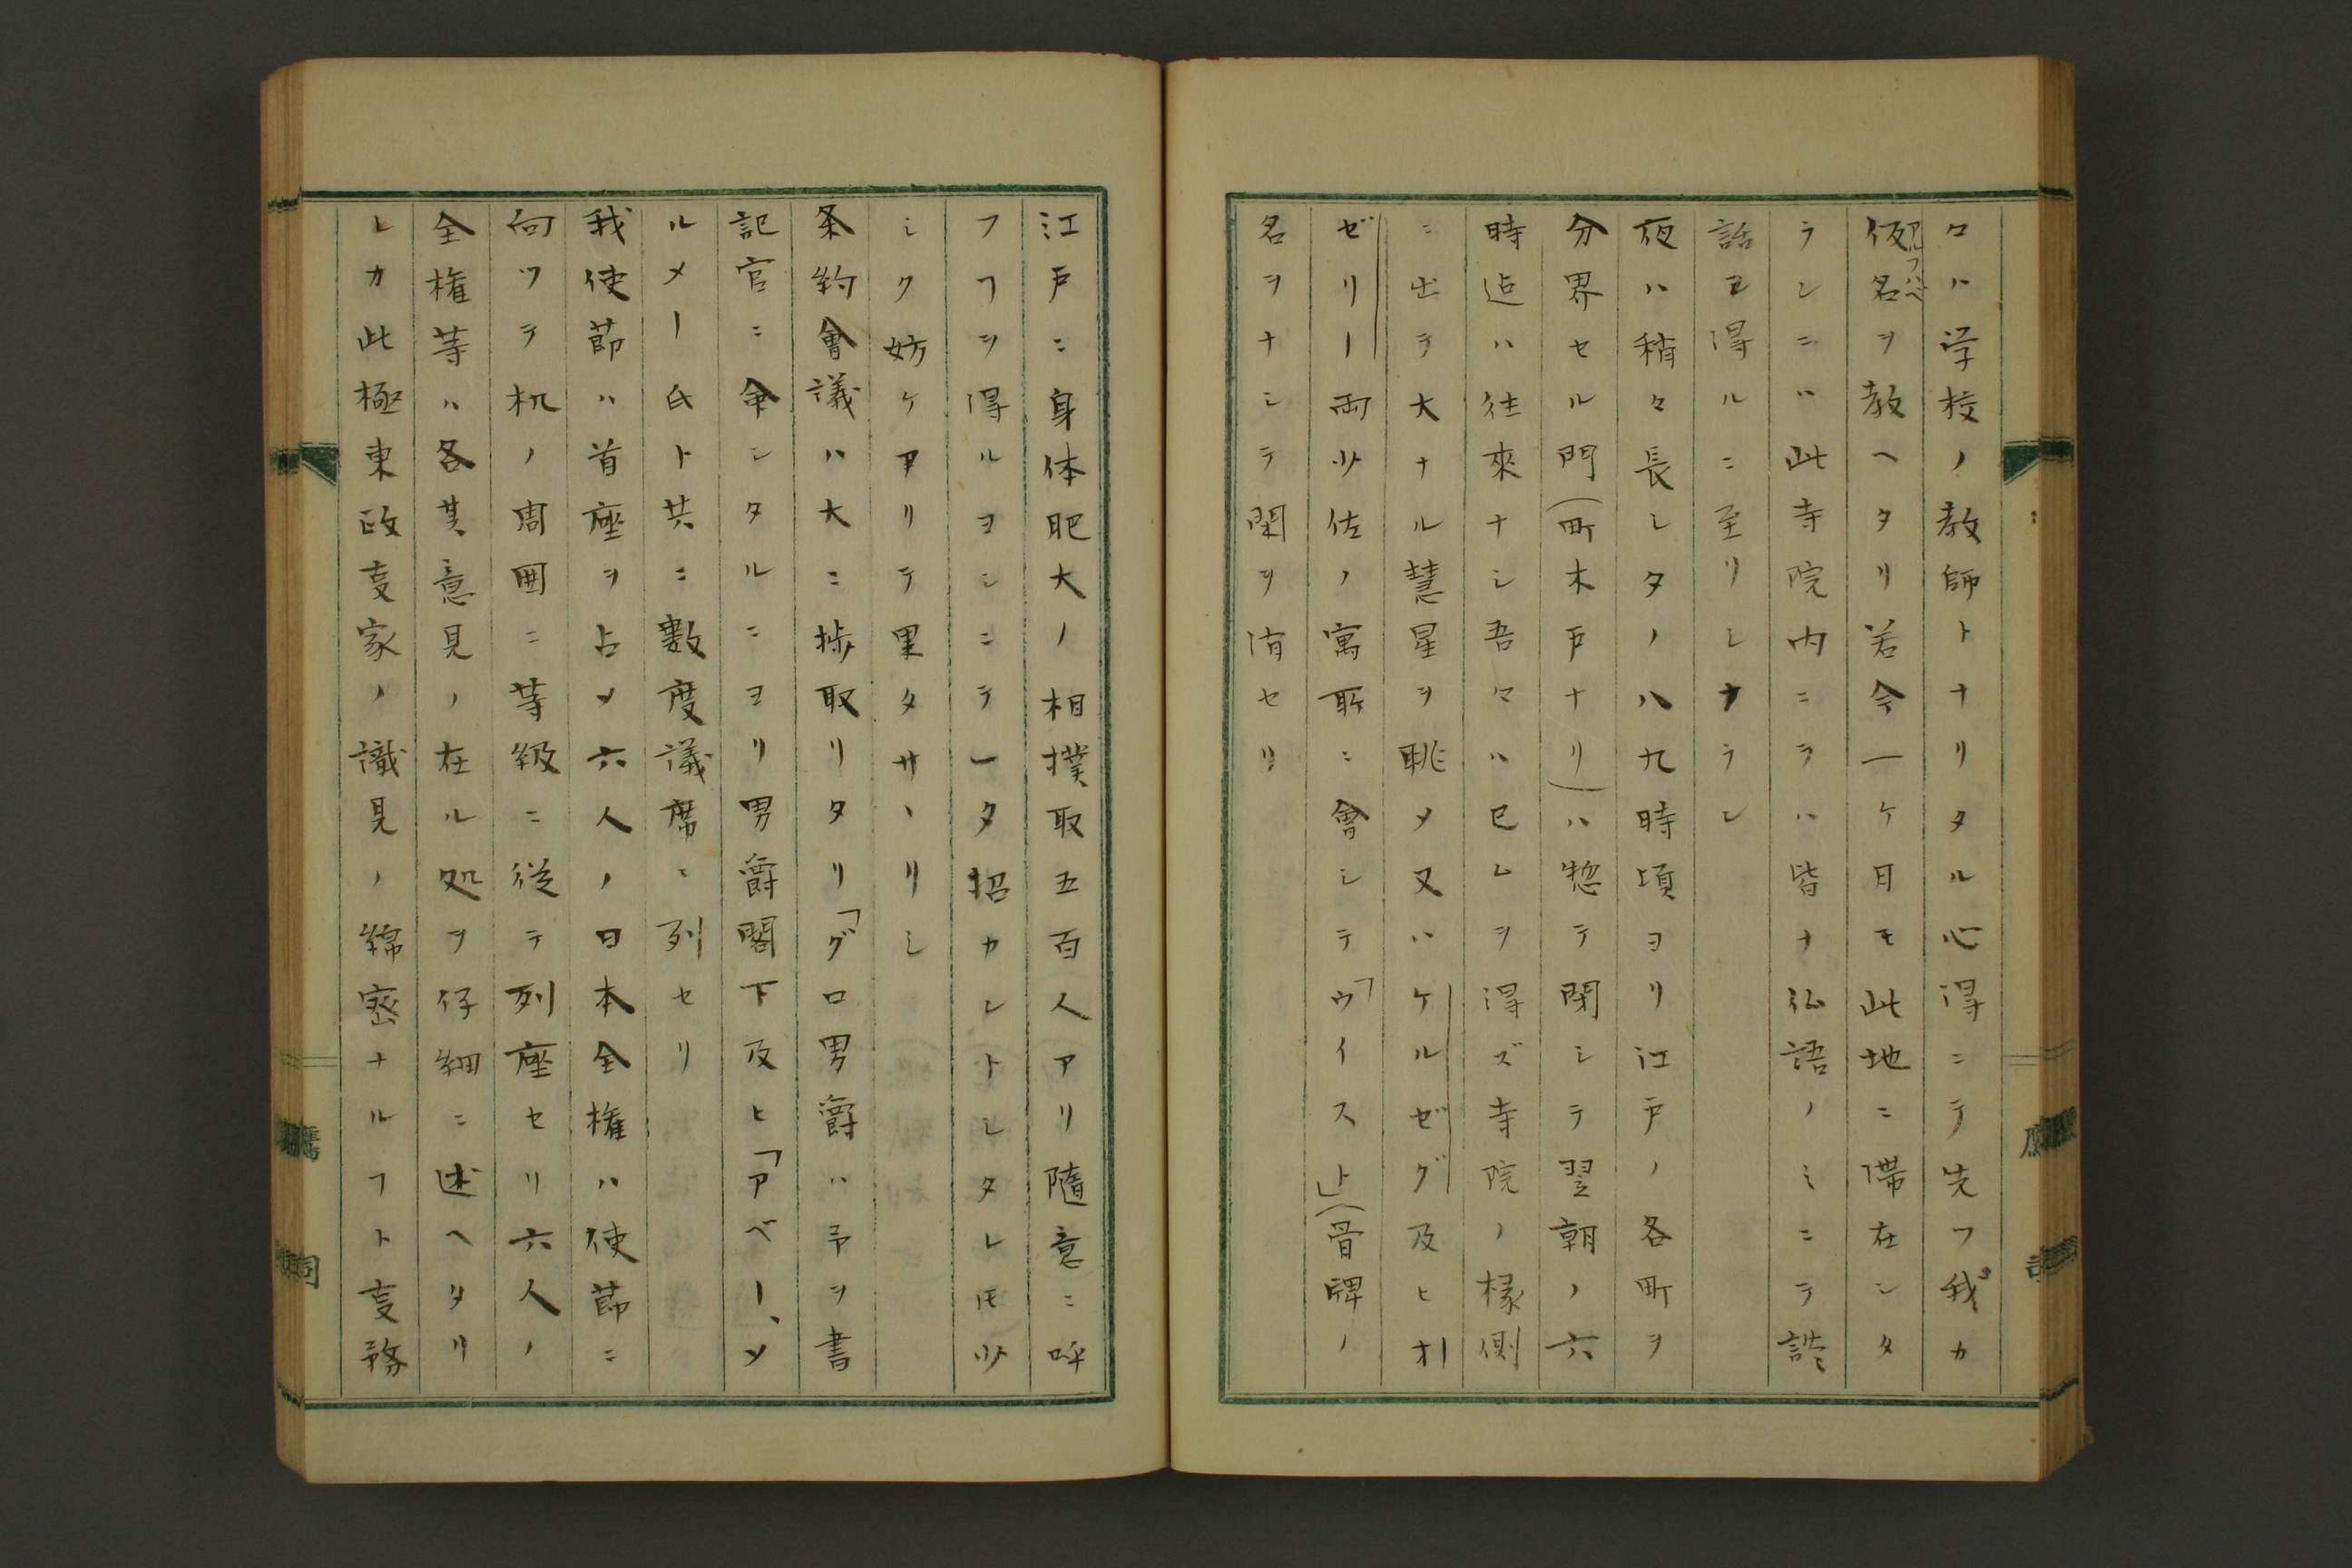 ロハ学校ノ教師トナリタル心得ニテ先ツ我カ
仮名ヲ教ヘタリ若今一ケ月モ此地ニ滞在シタ
アルフハベ
ランニハ此寺院内ニヲハ皆ナ仏語ノミニテ誥
話ヲ得ルニ至リシナラン
夜ハ稍々長シタノ八九時頃ヨリ江戸ノ各町ヲ
分界セル門(町木戸ナリ)ハ惣テ閉シテ翌朝ノ六
時迠ハ往來ナシ吾々ハ已ムヲ得ズ寺院ノ椽側
ニ出テ大ナル慧星ヲ眺メ又ハケルゼグ及ヒオ
ゼリー両少佐ノ寓所ニ會シテ「ウイスト」(骨牌ノ
名ヲナシテ閑ヲ消セリ
江戸ニ身体肥大ノ相撲取五百人アリ隨意ニ呼
フヿヲ得ルヨシニテ一タ招カレトシタレ𪜈少
シク妨ケアリテ果タサヽリシ
条約會議ハ大ニ捗取リタリ「グロ男爵ハ予ヲ書
記官ニ命シタルニヨリ男爵閣下及ヒ「アベー、メ
ルメー氏ト共ニ數度議席ニ列セリ
我使節ハ首座ヲ占メ六人ノ日本全権ハ使節ニ
向ツテ机ノ周囲ニ等級ニ従テ列座セリ六人ノ
全権等ハ各其意見ノ在ル処ヲ仔細ニ述ヘタリ
シカ此極東政事家ノ識見ノ綿密ナルヿト事務